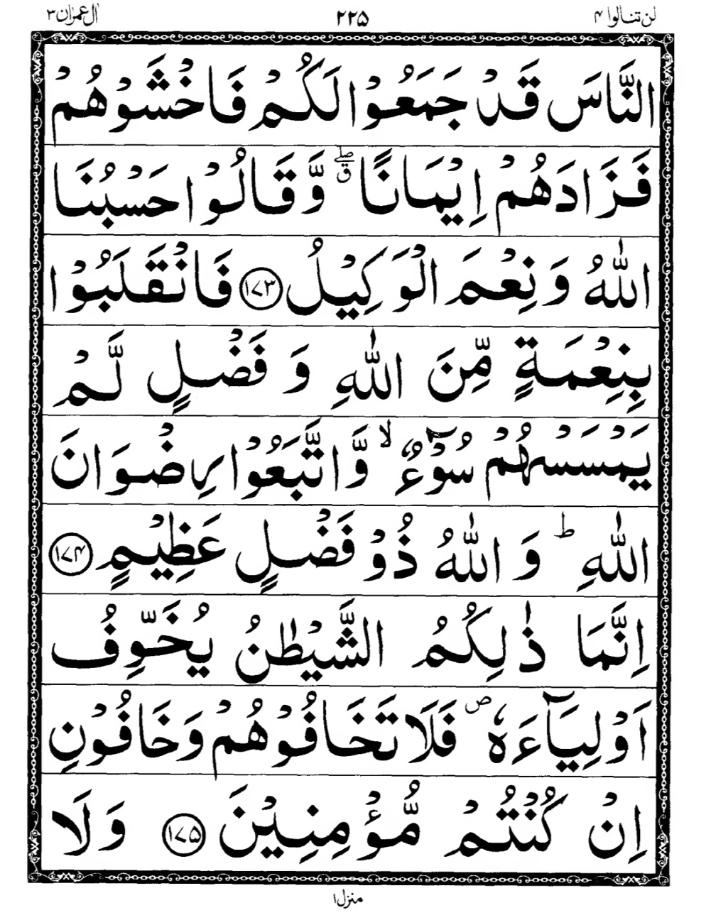 لن تنالوا ۴ ۲۲۵ اٰل عمرٰن ۳
النَّاسَ قَدْ جَمَعُوْا لَكُمْ فَاخْشَوْهُمْ
فَزَادَهُمْ اِيْمَانًا ۖق وَّ قَالُوْا حَسْبُنَا
اللّٰهُ وَ نِعْمَ الْوَكِيْلُ ﴿۱۷۳﴾ فَانْقَلَبُوْا
بِنِعْمَةٍ مِّنَ اللّٰهِ وَ فَضْلٍ لَّمْ
يَمْسَسْهُمْ سُوْٓءٌ ۙ وَّ اتَّبَعُوْا رِضْوَانَ
اللّٰهِ ؕ وَ اللّٰهُ ذُوْ فَضْلٍ عَظِيْمٍ ﴿۱۷۴﴾
اِنَّمَا ذٰلِكُمُ الشَّيْطٰنُ يُخَوِّفُ
اَوْلِيَآءَهٗ ۪ فَلَا تَخَافُوْهُمْ وَخَافُوْنِ
اِنْ كُنْتُمْ مُّؤْمِنِيْنَ ﴿۱۷۵﴾ وَلَا
منزل ۱